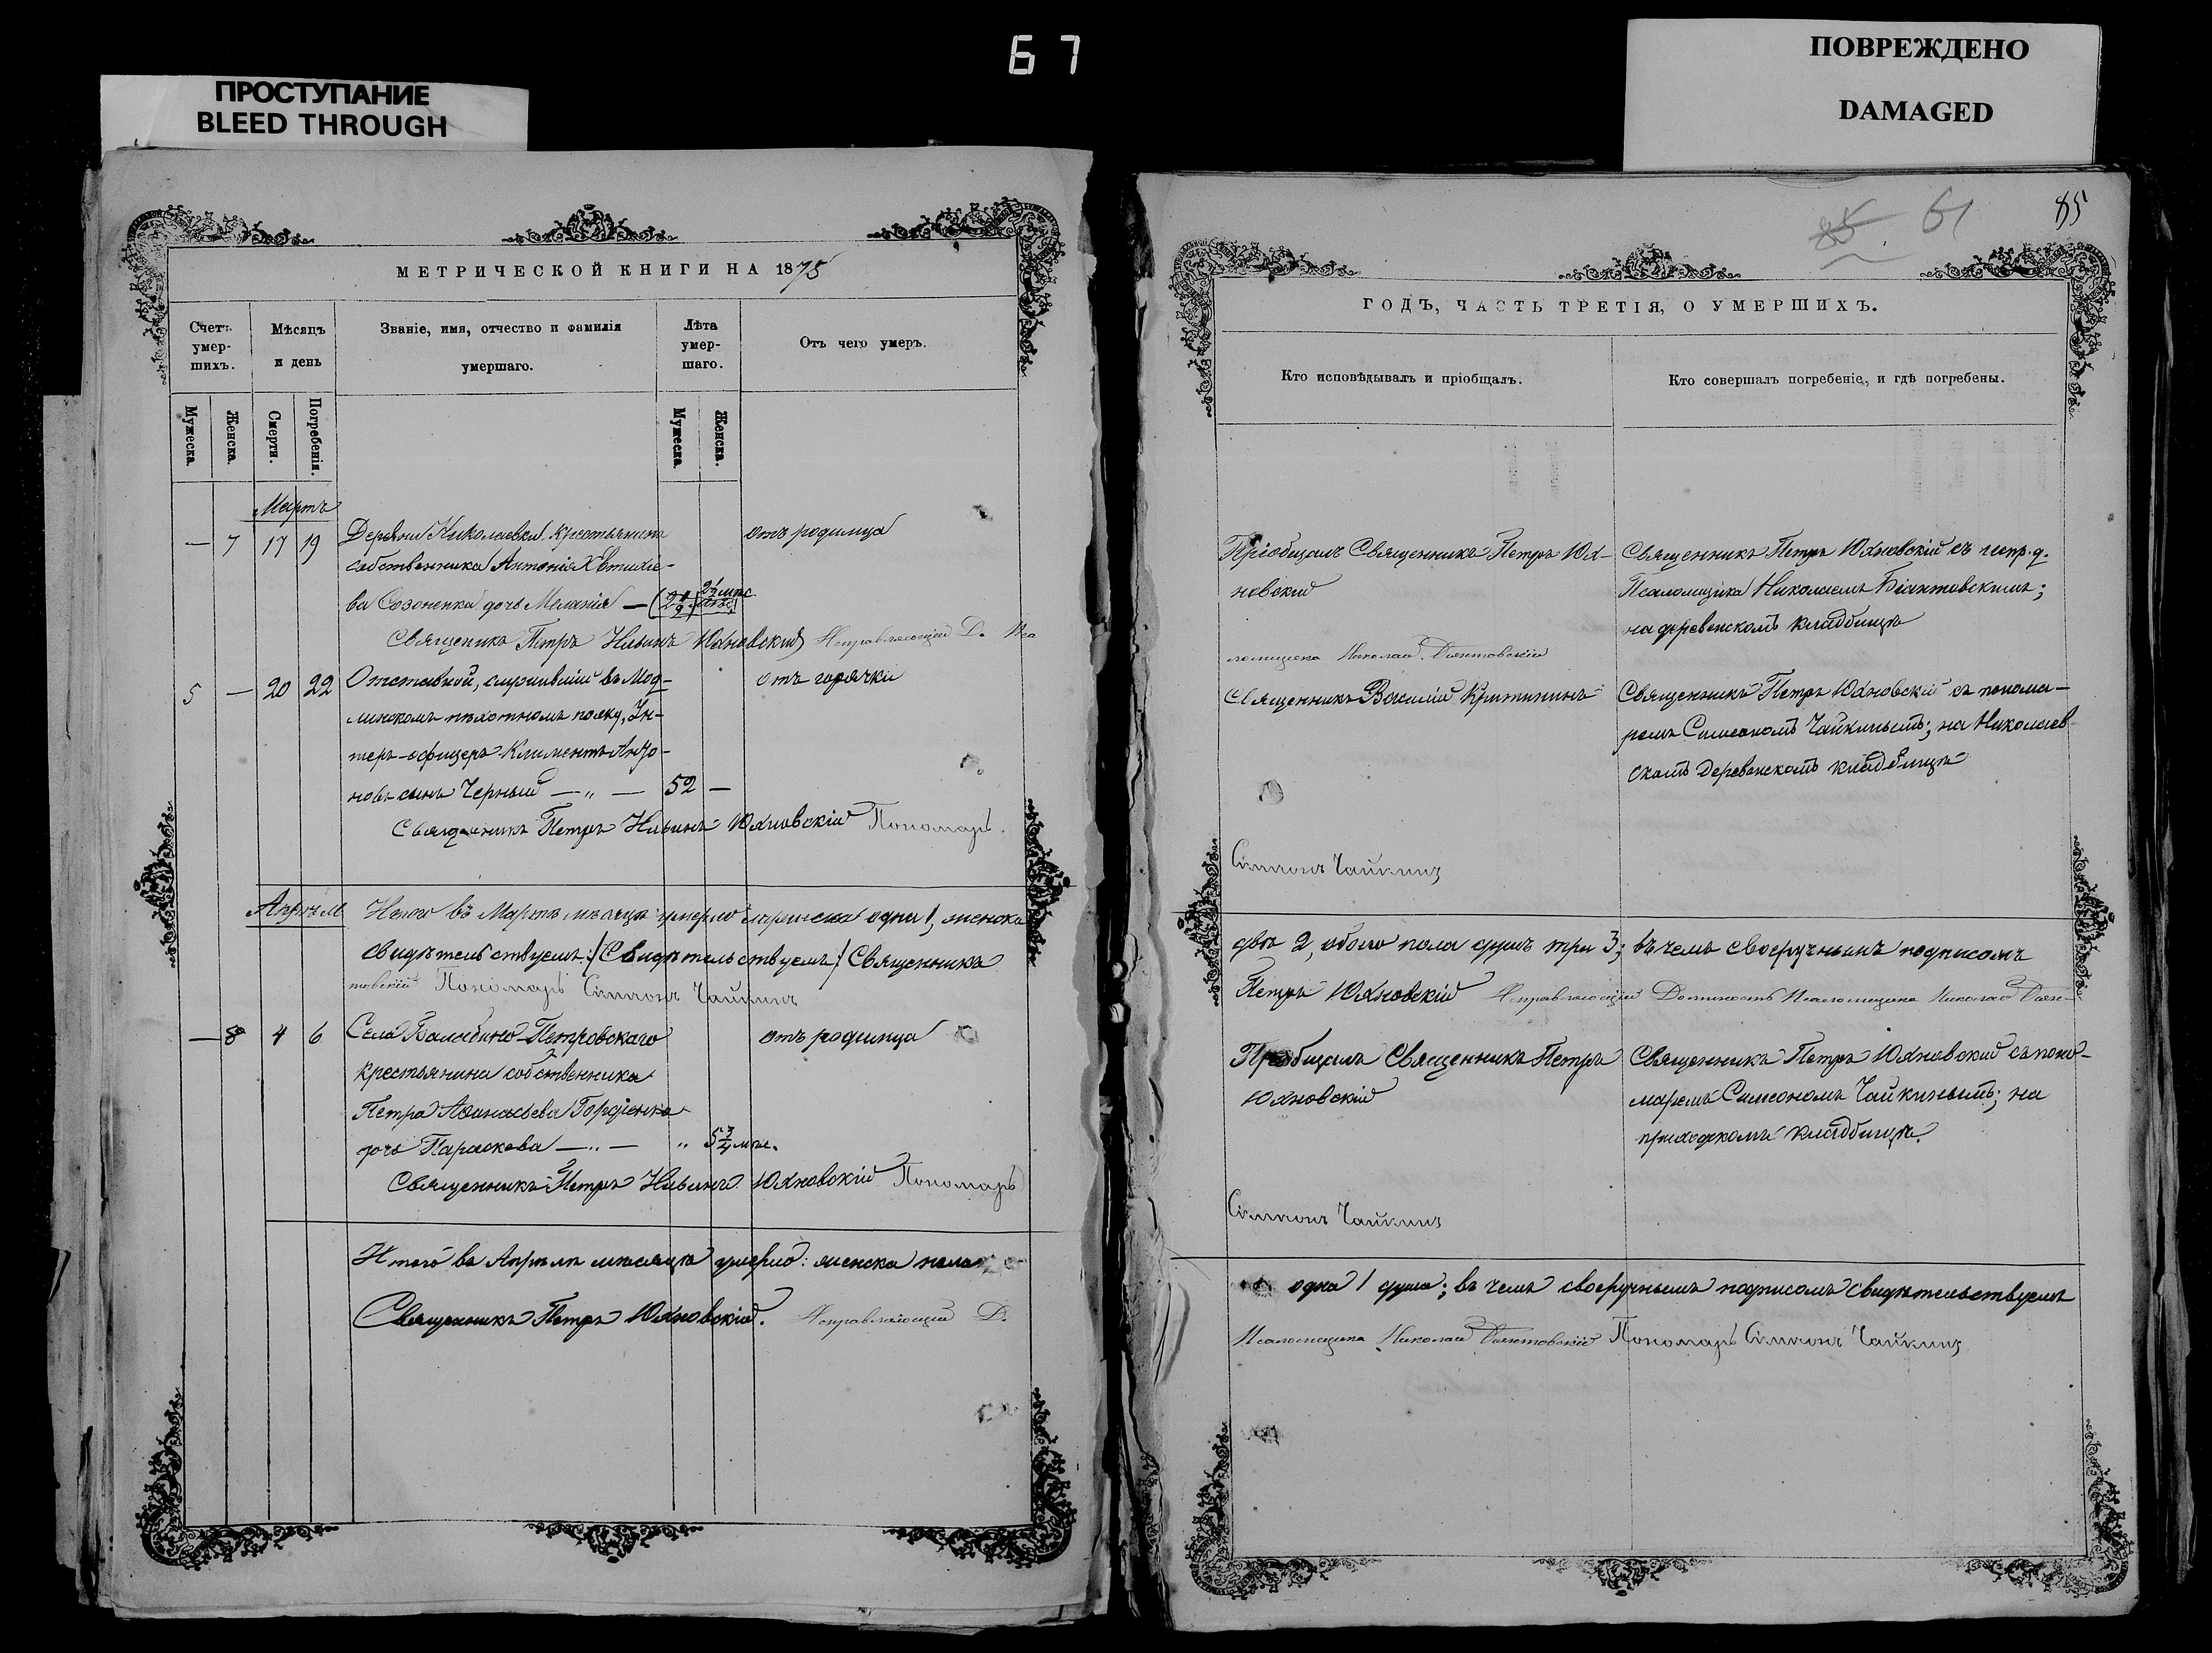 67
ПРОСТУПАНИЕ
BLEED THROUGH
ПОВРЕЖДЕНО
DAMAGED
МЕТРИЧЕСКОЙ КНИГИ НА 1875
Счетъ умер-шихъ.
Мѣсяцъ и день
Званіе, имя, отчество и фамилія умершаго.
Лѣта умер-шаго.
Отъ чего умеръ.
Мужеска.
Женска.
Смерти.
Погребенія.
Мужеска.
Женска.
Мартъ
— 7 17 19 Деревни Николаевки крестьянина отъ родимца
собственника Антонія Евтихіе-
ва Созоненка дочь Меланія —
Священникъ Петръ Ильинъ Юхновскій Исправляющій Д. Пса
5 — 20 22 Отставной, служившій въ Мод- отъ горячки
линскомъ пѣхотномъ полку, Ун-
теръ-офицеръ Климентъ Анто-
новъ сынъ Черный — „ — 52 —
Священникъ Петръ Ильинъ Юхновскій Пономарь
Апрѣль
Итого въ Мартѣ мѣсяцѣ умерло мужеска одна 1, женска
свидѣтельствуемъ:/Свидѣтельствуемъ/Священникъ
товскій Пономарь Симеонъ Чайкинъ
— 8 4 6 Села Балабино-Петровскаго отъ родимца
крестьянина собственника
Петра Аѳанасьева Гордіенко
дочь Параскева — „ — „ 5 3/4 мѣс.
Священникъ Петръ Ильинъ Юхновскій Пономарь
Итого въ Апрѣлѣ мѣсяцѣ умерло: женска пола
Священникъ Петръ Юхновскій. Исправляющій Д.
85 61 85
ГОДЪ, ЧАСТЬ ТРЕТІЯ, О УМЕРШИХЪ.
Кто исповѣдывалъ и пріобщалъ.
Кто совершалъ погребеніе, и гдѣ погребены.
Пріобщалъ Священникъ Петръ Юх- Священникъ Петръ Юхновскій съ испр. д.
новскій Псаломщика Николаемъ Біантовскимъ;
на деревенскомъ кладбищѣ
ломщика Николай Біянтовскій
Священникъ Василій Священникъ Петръ Юхновскій съ понома-
ремъ Симеономъ Чайкинымъ; на Николаев-
скомъ деревенскомъ кладбищѣ
Симеонъ Чайкинъ
двѣ 2, обоего пола душъ три 3; въ чемъ своеручнымъ подписомъ
Петръ Юхновскій Исправляющій Должность Псаломщика Николай Біян-
Пріобщалъ Священникъ Петръ Священникъ Петръ Юхновскій съ поно-
Юхновскій маремъ Симеономъ Чайкинымъ; на
приходскомъ кладбищѣ.
Симеонъ Чайкинъ
одна 1 душа; въ чемъ своеручнымъ подписомъ свидѣтельствуемъ
Псаломщика Николай Біянтовскій Пономарь Симеонъ Чайкинъ